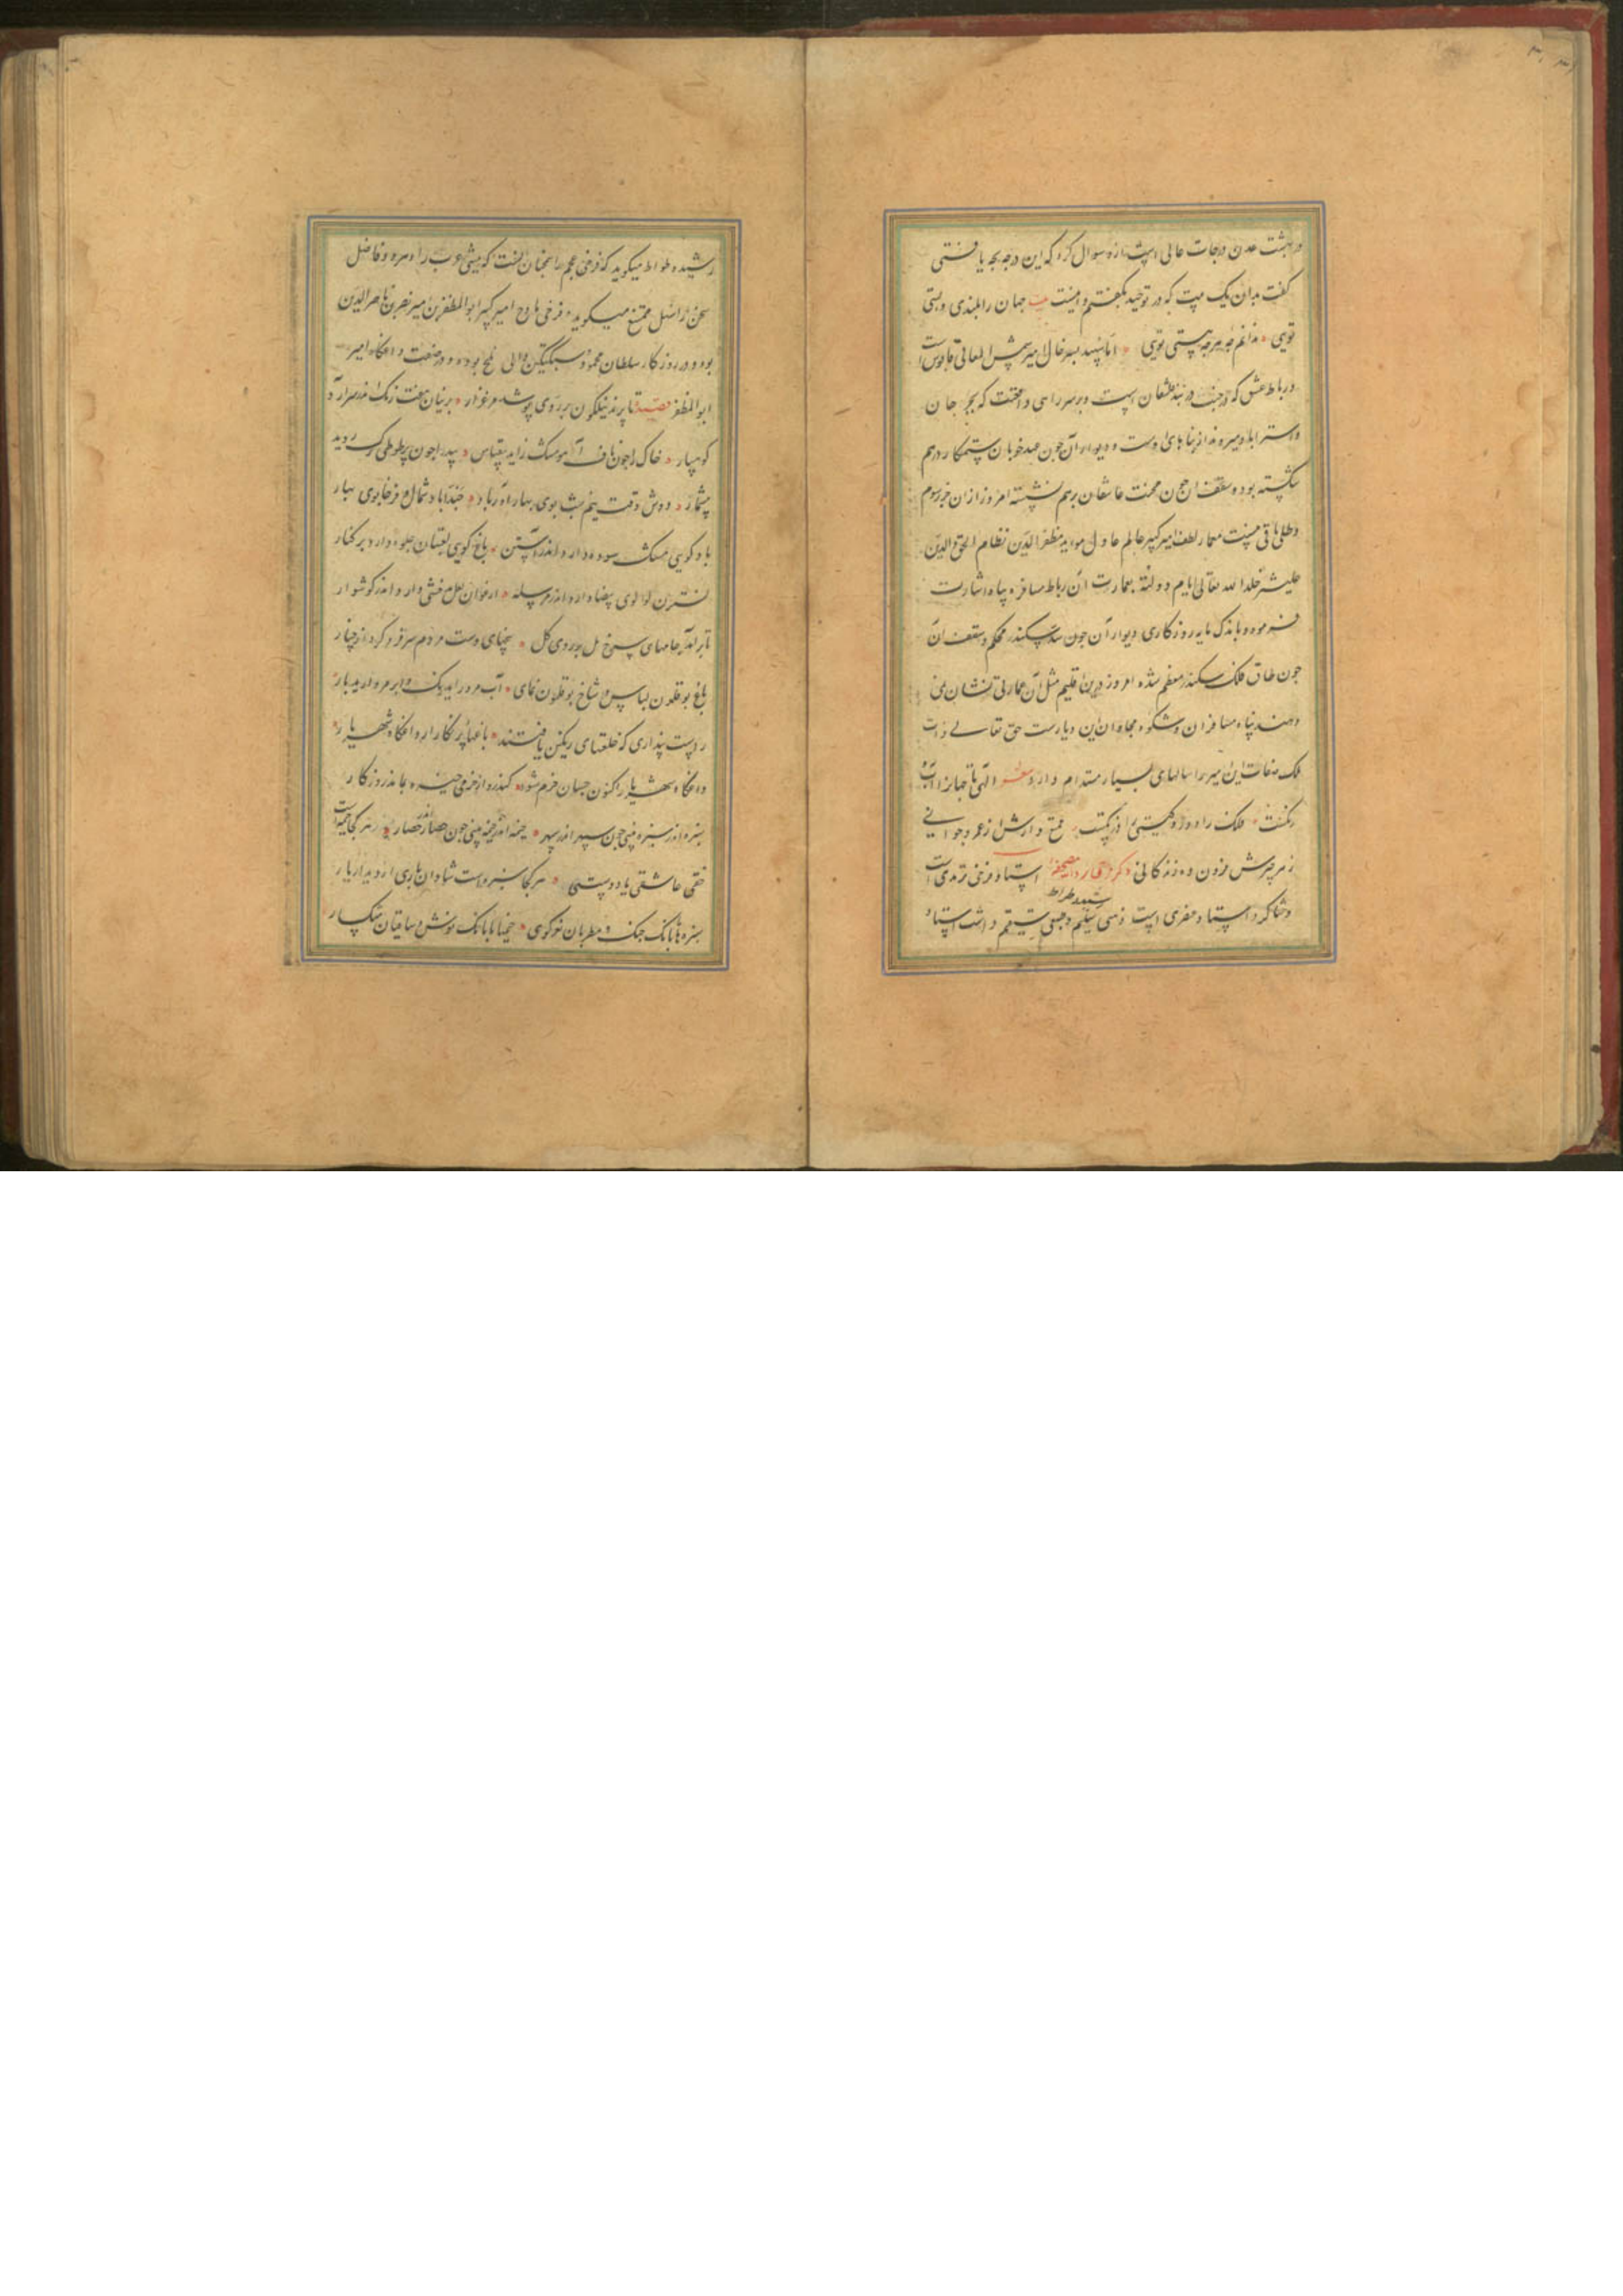 در بهشت عدن درجات عالی است ازو سوال کرد که این درجه بچه یافتی
گفت بدان یک بیت که در توحید بگفتم و اینست بیت جهان را بلندی و پستی
تویی ندانم چه هرچه هستی تویی اما سپهبد پسر خال امیر شمس المعالی قابوس است
و رباط عشق که در دربند شقان است و بر سر راهی واقعست که بجرجان
و استراباد میروند از بناهای اوست و دیوار آن چون عهد خوبان ستمکار درهم
شکسته بوده و سقف او چون محنت عاشقان برهم نشسته امروز از آن جز رسوم
و طللی باقی نیست معمار لطف امیر کبیر عالم عادل موید مظفر الدین نظام الحق والدین
علیشر خلد الله تعالی ایام دولته بعمارت آن رباط مسافر پناه اشارت
فرموده و باندک مایه روزگاری دیوار آن چون سد سکندر محکم و سقف آن
چون طاق فلک سکندر معظم شده امروز درین اقلیم مثل آن عمارتی نشان نمی
دهند پناه مسافران و شکوه مجاوران این دیارست حق تعالی ذات
ملک صفات این امیر را سالهای بسیار مستدام داراد شعر الهی تا جهان را آب
و رنگست فلک را دور و گیتی را درنگست ممتع دارش از عمر و جوانی
ز هر چیزش فزون ده زندگانی ذکر استاد فرخی ترمدی است
و شاگرد استاد عنصری است ذهنی سلیم و طبعی مستقیم داشت استاد
رشید وطواط
رشید وطواط میگوید که فرخی عجم را همچنان است که متنبی عرب را و هر دو فاضل
سخن را سهل ممتنع میگویند فرخی مادح امیر کبیر ابو المظفر بن امیر نصر بن ناصر الدین
بود و در روزگار سلطان محمود سبکتکین والی بلخ بوده و در صفت داغگاه امیر
ابو المظفر قصیده تا پرند نیلگون بر روی پوشد مرغزار پرنیان هفت رنگ اندر سر آرد
کوهسار خاک را چون ناف آهو مشک زاید بیقیاس بید را چون پر طوطی برگ روید
بیشمار دوش وقت نیم شب بوی بهار آورد باد حبذا باد شمال و فرخا بوی بهار
باد گویی مشک سوده دارد اندر آستین باغ گویی لعبتان جلوه دارد بر کنار
نسترن لولوی بیضا دارد اندر مرسله ارغوان لعل بدخشی دارد اندر گوشوار
تا بر آمد جامهای سرخ مل بر روی گل پنجهای دست مردم سر فرو کرد از چنار
باغ بوقلمون لباس و شاخ بوقلمون نمای آب مروارید رنگ و ابر مروارید بار
راست پنداری که خلعتهای رنگین یافتند باغهای پر نگار از داغگاه شهریار
داغگاه شهریار اکنون چنان خرم شود کاندرو از خرمی خیره بماند روزگار
سبزه اندر سبزه بینی چون سپهر اندر سپهر خیمه اندر خیمه بینی چون حصار اندر حصار هر کجا خیمه است
خفته عاشقی با دوستی هر کجا سبزه است شادان یاری از دیدار یار
سبزه ها با بانگ چنگ و مطربان نغز گوی خیمها با بانگ نوش و ساقیان میگسار